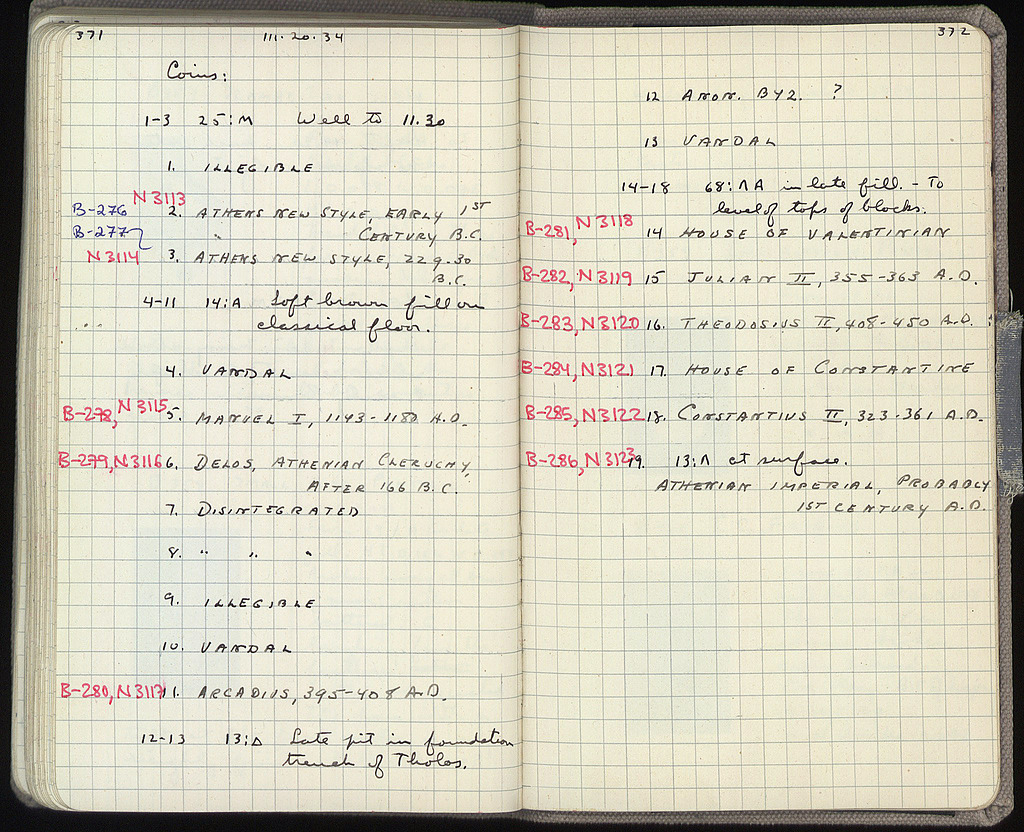 371 111·20·34
Coins:
1-3 25:M Well to 11.30
1. ILLEGIBLE
B-276 N3113 2. ATHENS NEW STYLE, EARLY 1ST
B-277 CENTURY B.C.
N3114 3. ATHENS NEW STYLE, 229-30
B.C.
4-11 14:A Soft brown fill on
classical floor.
4. VANDAL
B-278, N3115 5. MANUEL I, 1143-1180 A.D.
B-279, N3116 6. DELOS, ATHENIAN CLERUCHY,
AFTER 166 B.C.
7. DISINTEGRATED
8. " " "
9. ILLEGIBLE
10. VANDAL
B-280, N3117 11. ARCADIUS, 395-408 A.D.
12-13 13:Δ Late pit in foundation
trench of Tholos.
372
12 ANON. BYZ. ?
13 VANDAL
14-18 68:ΛA in late fill. - To
level of tops of blocks.
B-281, N3118 14 HOUSE OF VALENTINIAN
B-282, N3119 15 JULIAN II, 355-363 A.D.
B-283, N3120 16. THEODOSIUS II, 408-450 A.D.
B-284, N3121 17. HOUSE OF CONSTANTINE
B-285, N3122 18. CONSTANTIUS II, 323-361 A.D.
B-286, N3123 19. 13:Λ at surface.
ATHENIAN IMPERIAL, PROBABLY
1ST CENTURY A.D.